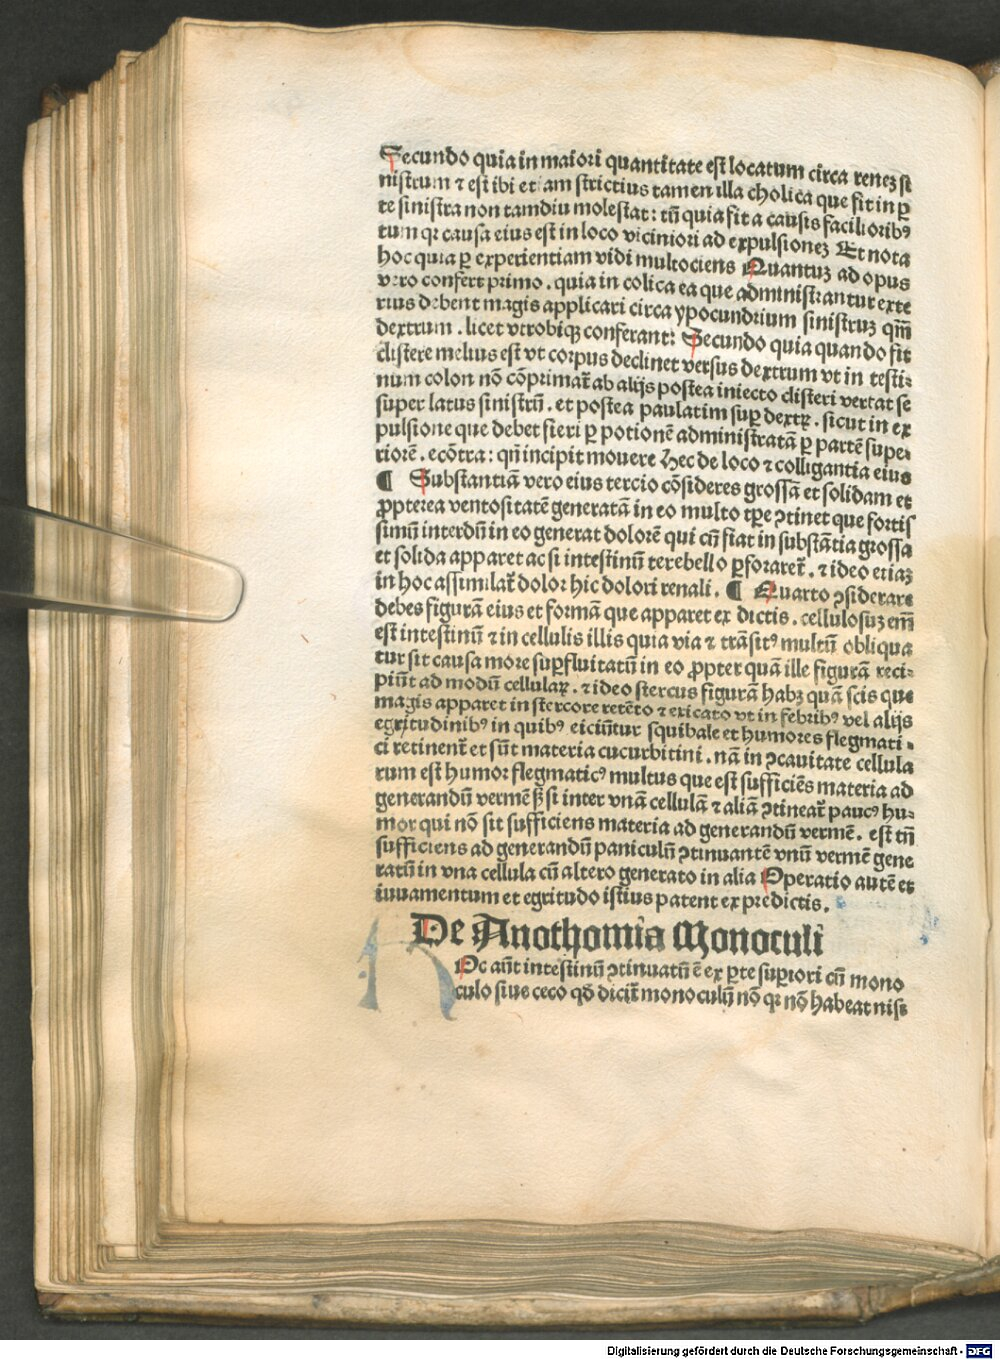 Secundo quia in maiori quantitate est locatum circa renez si
nistrum ⁊ est ibi etiam strictius tamen illa cholica que fit in ꝑ
te sinistra non tamdiu molestat: tñ quia fit a causis facilioribꝰ
tum qꝛ causa eius est in loco viciniori ad expulsionez Et nota
hoc quia ꝑ experientiam vidi multociens Quantuz ad opus
vero confert primo . quia in colica ea que administrantur exte
rius debent magis applicari circa ypocundrium sinistruz qm̃
dextrum . licet vtrobiqꝫ conferant: Secundo quia quando fit
clistere melius est vt corpus declinet versus dextrum vt in testi⸗
num colon nō cōprimat̃ ab alijs postea iniecto clisteri vertat se
super latus sinistrū . et postea paulatim suꝑ dextꝝ . sicut in ex
pulsione que debet fieri ꝑ potionē administratā ꝑ partē supe⸗
riorē . ecōtra: qñ incipit mouere hec de loco ⁊ colligantia eius
¶ Substantiā vero eius tercio cōsideres grossā et solidam et
ꝓpterea ventositatē generatā in eo multo tꝑe ꝯtinet que fortis
simū interdū in eo generat dolorē qui cū fiat in substātia grossa
et solida apparet ac si intestinū terebello ꝑforaret̃ . ⁊ ideo etiaꝫ
in hoc assimilat̃ dolor hic dolori renali . ¶ Quarto ꝯsiderare
debes figurā eius et formā que apparet ex dictis . cellulosuz em̃
est intestinū ⁊ in cellulis illis quia via ⁊ trāsitꝰ multū obliqua
tur fit causa more suꝑfluitatū in eo ꝓpter quā ille figurā reci⸗
piūt ad modū cellulaꝝ . ⁊ ideo stercus figurā habꝫ quā scis que
magis apparet in stercore retēto ⁊ exicato vt in febribꝰ vel alijs
egritudinibꝰ in quibꝰ eiciūtur squibale et humores flegmati⸗
ci retinent̃ et sūt materia cucurbitini . nā in ꝯcauitate cellula
rum est humor flegmaticꝰ multus que est sufficiēs materia ad
generandū vermē ꝫ si inter vnā cellulā ⁊ aliā ꝯtineat̃ paucꝰ hu⸗
mor qui nō sit sufficiens materia ad generandū vermē . est tñ
sufficiens ad generandū paniculū ꝯtinuantē vnū vermē gene
ratū in vna cellula cū altero generato in alia Operatio autē et
iuuamentum et egritudo istius patent ex predictis .
De Anothomia Monoculi
Oc aūt intestinū ꝯtinuatū ē ex ꝑte suꝑiori cū mono
culo siue ceco qd̃ dicit̃ monoculū nō qꝛ nō habeat nisi
Digitalisierung gefördert durch die Deutsche Forschungsgemeinschaft - DFG